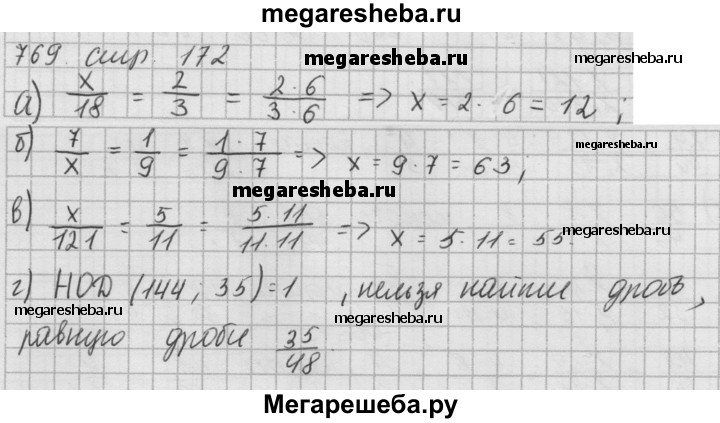 megaresheba.ru
769. стр. 172
megaresheba.ru
megaresheba.ru
а) x/18 = 2/3 = 2·6/3·6 => x = 2·6 = 12;
megaresheba.ru
б) 7/x = 1/9 = 1·7/9·7 => x = 9·7 = 63;
megaresheba.ru
megaresheba.ru
в) x/121 = 5/11 = 5·11/11·11 => x = 5·11 = 55.
megaresheba.ru
г) НОД (144; 35) = 1, нельзя найти дробь,
megaresheba.ru
megaresheba.ru
равную дроби 35/48.
Мегарешеба.ру